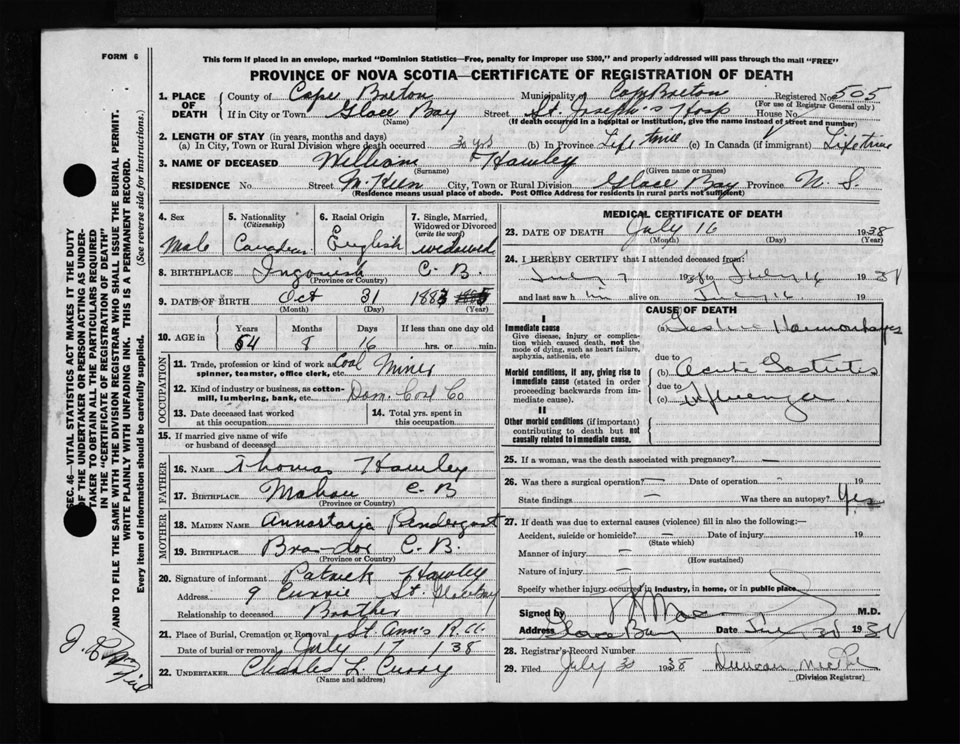 FORM 6
This form if placed in an envelope, marked "Dominion Statistics—Free, penalty for improper use $300," and properly addressed will pass through the mail "FREE"
PROVINCE OF NOVA SCOTIA—CERTIFICATE OF REGISTRATION OF DEATH
1. PLACE OF DEATH County of Cape Breton Municipality of Cape Breton Registered No. 505
(For use of Registrar General only)
If in City or Town Glace Bay Street St. Joseph's Hosp House No.
(Name) (If death occurred in a hospital or institution, give the name instead of street and number)
2. LENGTH OF STAY (in years, months and days)
(a) In City, Town or Rural Division where death occurred 30 yrs (b) In Province Life time (c) In Canada (if immigrant) Life time
3. NAME OF DECEASED William Hawley
(Surname) (Given name or names)
RESIDENCE No. Street McKeen City, Town or Rural Division Glace Bay Province N. S.
(Residence means usual place of abode. Post Office Address for residents in rural parts not sufficient)
4. Sex 5. Nationality 6. Racial Origin 7. Single, Married, Widowed or Divorced
(Citizenship) (write the word)
Male Canadian English widowed
8. BIRTHPLACE Ingonish C. B.
(Province or Country)
9. DATE OF BIRTH Oct 31 1883
(Month) (Day) (Year)
10. AGE in Years Months Days If less than one day old
54 8 16 hrs. or min.
OCCUPATION
11. Trade, profession or kind of work as spinner, teamster, office clerk, etc. Coal Miner
12. Kind of industry or business, as cotton-mill, lumbering, bank, etc. Dom. Coal Co
13. Date deceased last worked at this occupation 14. Total yrs. spent in this occupation
15. If married give name of wife or husband of deceased
FATHER
16. NAME Thomas Hawley
17. BIRTHPLACE Mabou C. B
(Province or Country)
MOTHER
18. MAIDEN NAME Annastatia Pendergast
19. BIRTHPLACE Bras-dor C. B.
(Province or Country)
20. Signature of informant Patrick Hawley
Address 9 Currie St. Glace Bay
Relationship to deceased Brother
21. Place of Burial, Cremation or Removal St Ann's R. C.
Date of burial or removal July 17 138
22. UNDERTAKER Charles L. Curry
(Name and address)
MEDICAL CERTIFICATE OF DEATH
23. DATE OF DEATH July 16 1938
(Month) (Day) (Year)
24. I HEREBY CERTIFY that I attended deceased from:
July 7 1938 to July 16 19
and last saw him alive on July 16 19
CAUSE OF DEATH
I
Immediate cause
Give disease, injury or complication which caused death, not the mode of dying, such as heart failure, asphyxia, asthenia, etc
(a) Gastric Haemorrhages
due to
Morbid conditions, if any, giving rise to immediate cause (stated in order proceeding backwards from immediate cause).
(b) Acute Gastritis
due to
(c) Influenza
II
Other morbid conditions (if important) contributing to death but not causally related to immediate cause.
25. If a woman, was the death associated with pregnancy? —
26. Was there a surgical operation? — Date of operation - 19
State findings — Was there an autopsy? Yes
27. If death was due to external causes (violence) fill in also the following:—
Accident, suicide or homicide? — Date of injury 19
(State which)
Manner of injury —
(How sustained)
Nature of injury —
Specify whether injury occurred in industry, in home, or in public place
Signed by M.D.
Address Glace Bay Date
28. Registrar's Record Number
29. Filed July 30 1938 Duncan
(Division Registrar)
SEC. 46—VITAL STATISTICS ACT MAKES IT THE DUTY
OF THE UNDERTAKER OR PERSON ACTING AS UNDERTAKER TO OBTAIN ALL THE PARTICULARS REQUIRED
IN THE "CERTIFICATE OF REGISTRATION OF DEATH"
AND TO FILE THE SAME WITH THE DIVISION REGISTRAR WHO SHALL ISSUE THE BURIAL PERMIT.
WRITE PLAINLY WITH UNFADING INK. THIS IS A PERMANENT RECORD.
Every item of information should be carefully supplied. (See reverse side for instructions.)